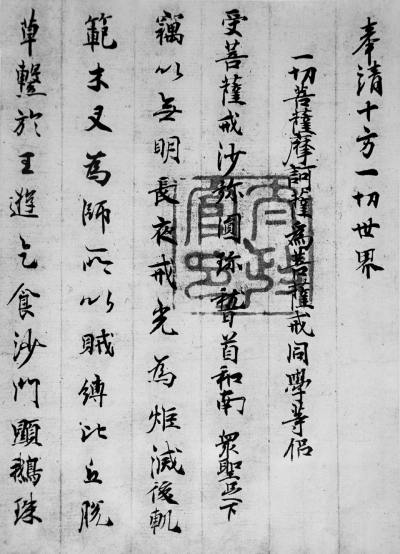 奉請十方一切世界
一切菩薩摩訶薩為菩薩戒同學等侶
受菩薩戒沙弥圓珍稽首和南衆聖足下
竊以無明長夜戒光為炬滅後軌
範木叉為師所以賊縛比丘脱
草繫於王遊乞食沙門顕鵝珠
太政官印